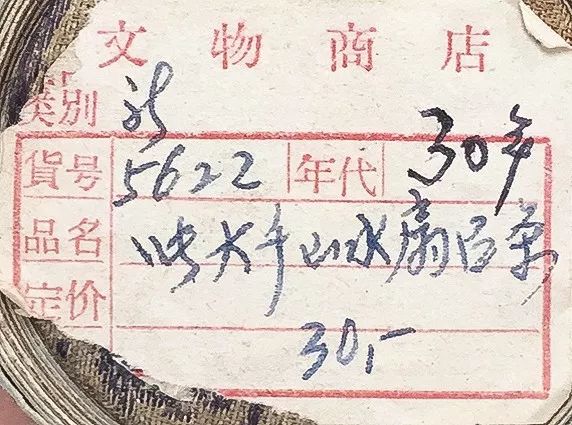 文物商店
类别
貨号 5622 年代 30年
品名 大千山水扇
定价 30.-